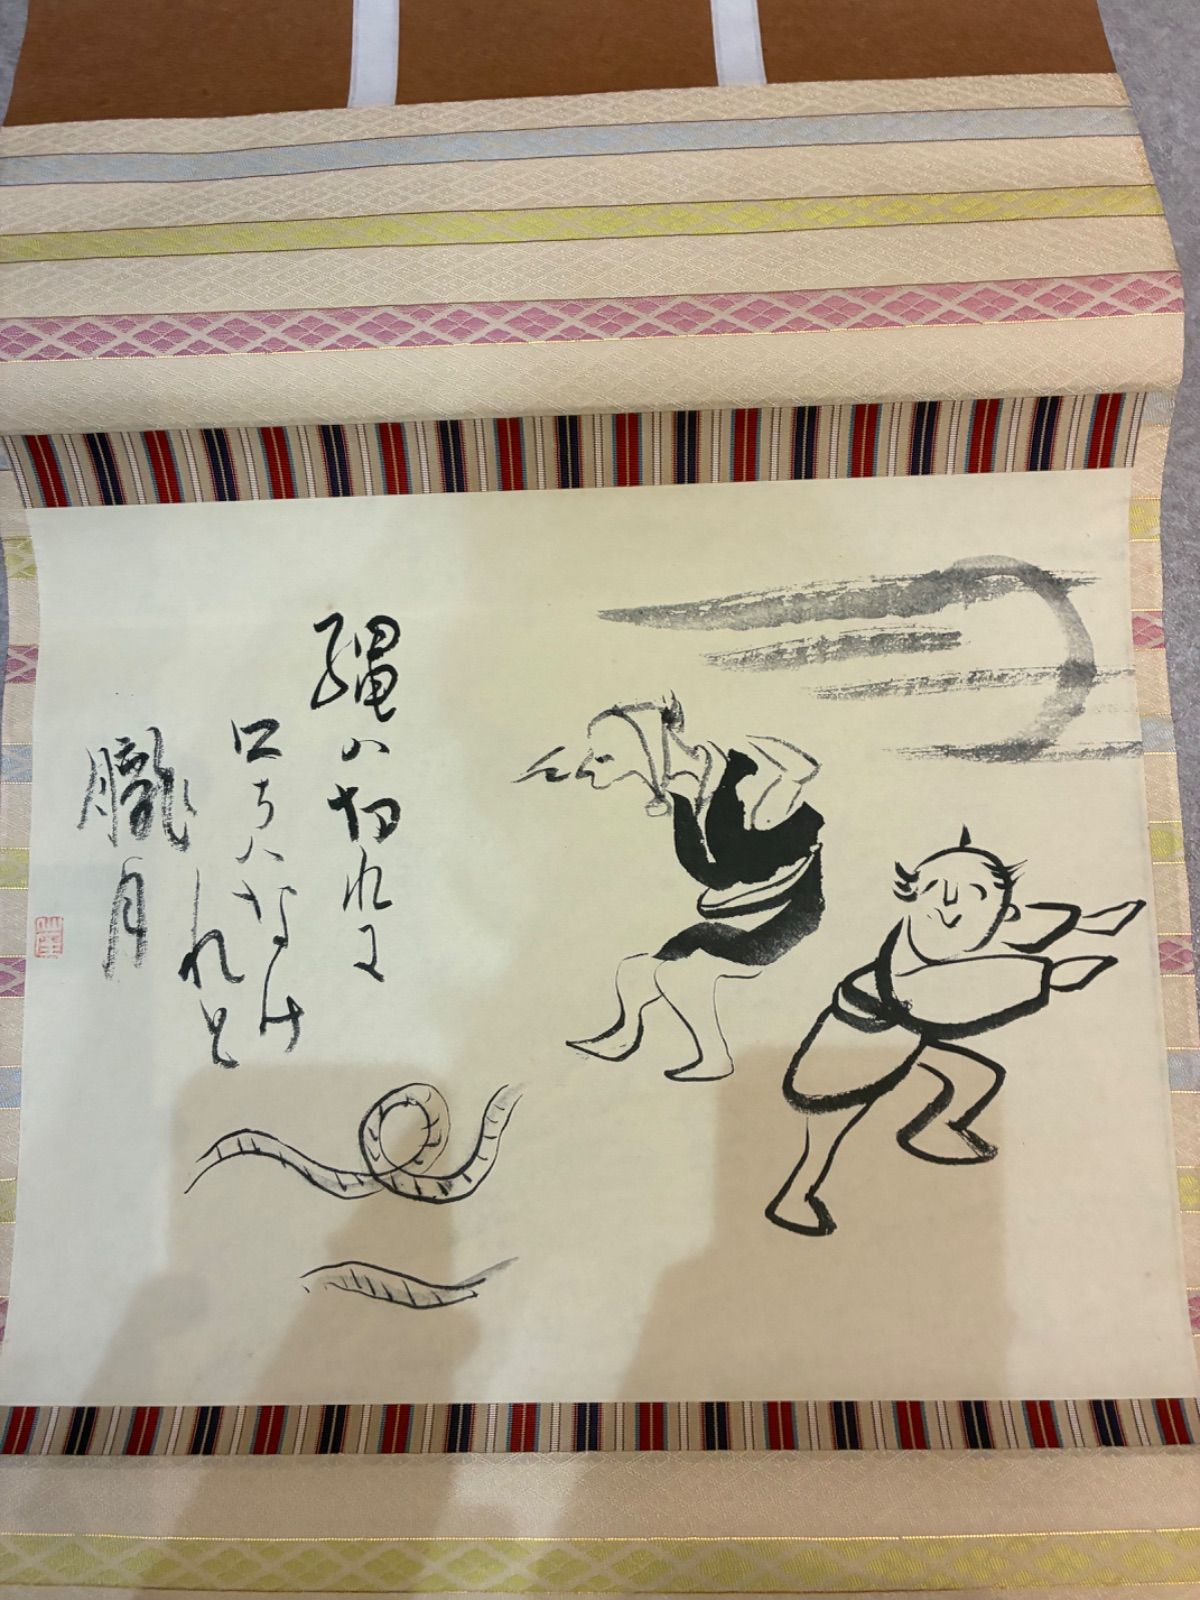 縄ハ切れに
口ちハなけ
れと
朧月